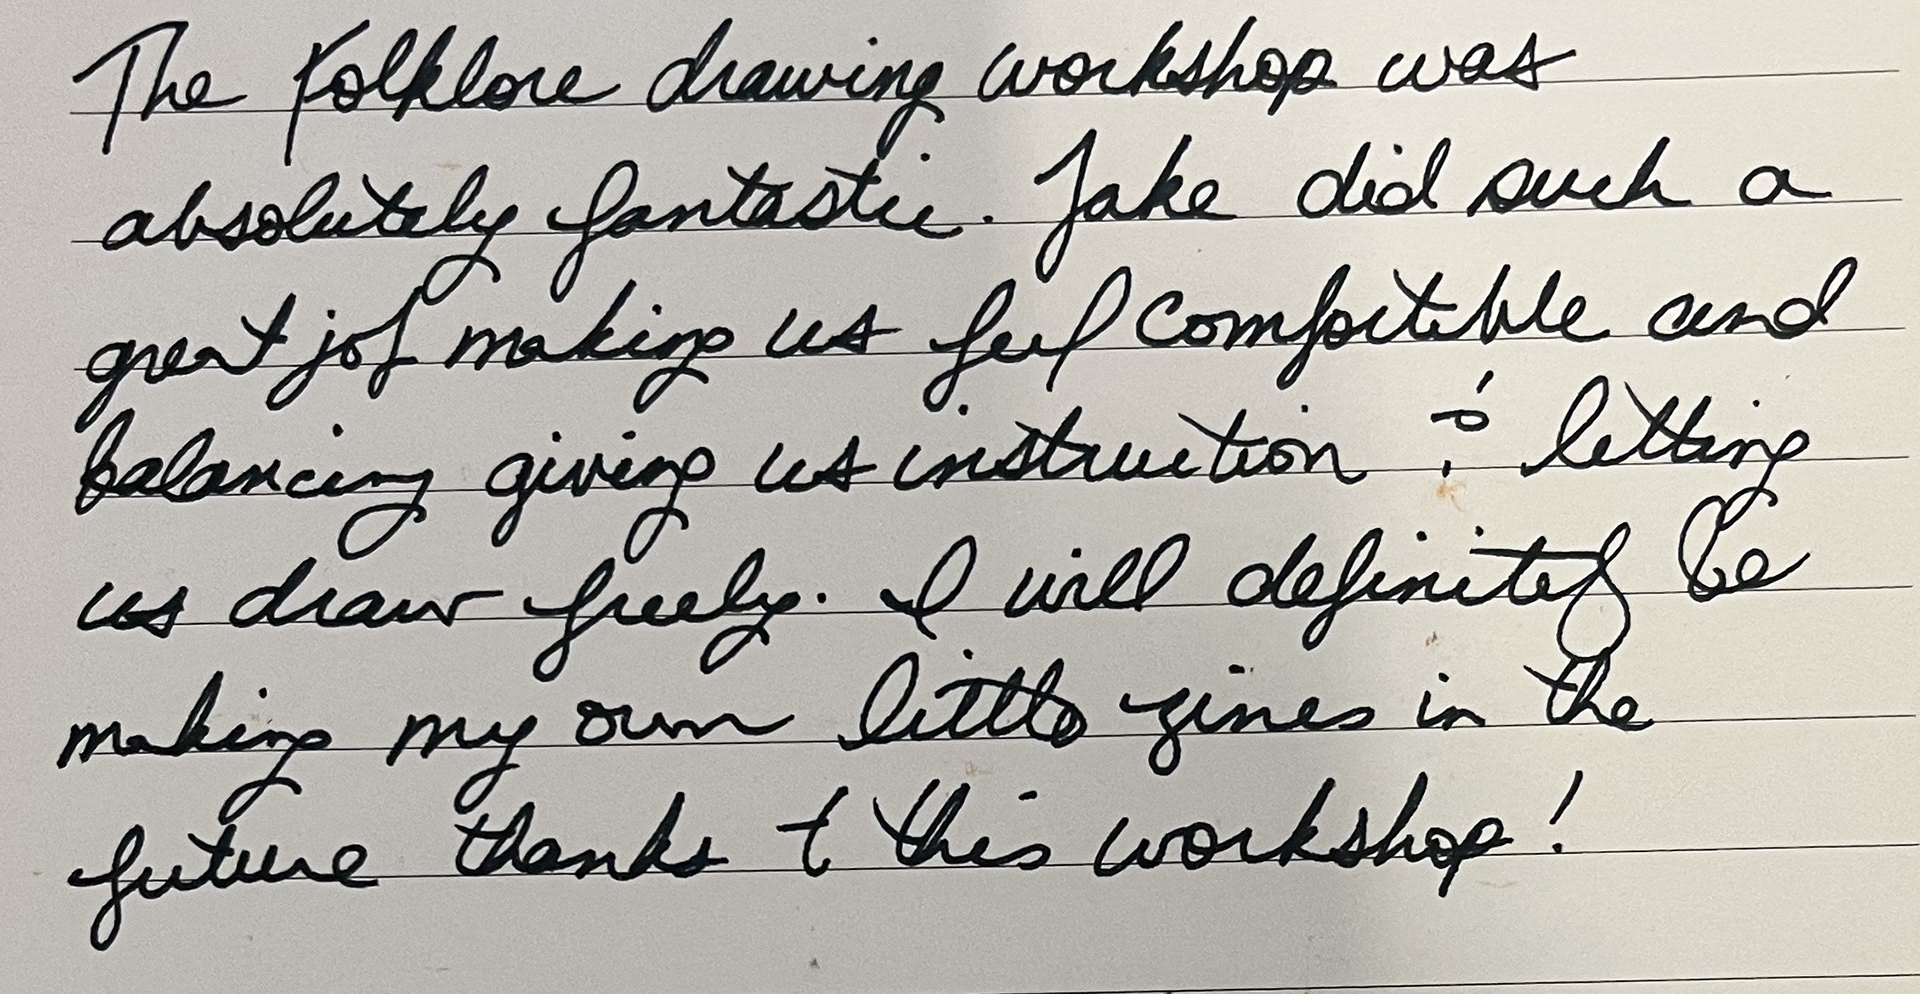 The Folklore drawing workshop was
absolutely fantastic. Jake did such a
great job making us feel comfortible and
balancing giving us instruction & letting
us draw freely. I will definitely be
making my own little zines in the
future thanks t this workshop!